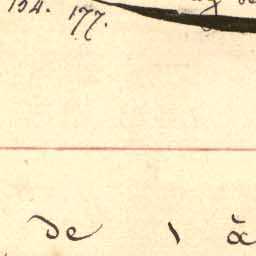 154. 177.
de 1 à